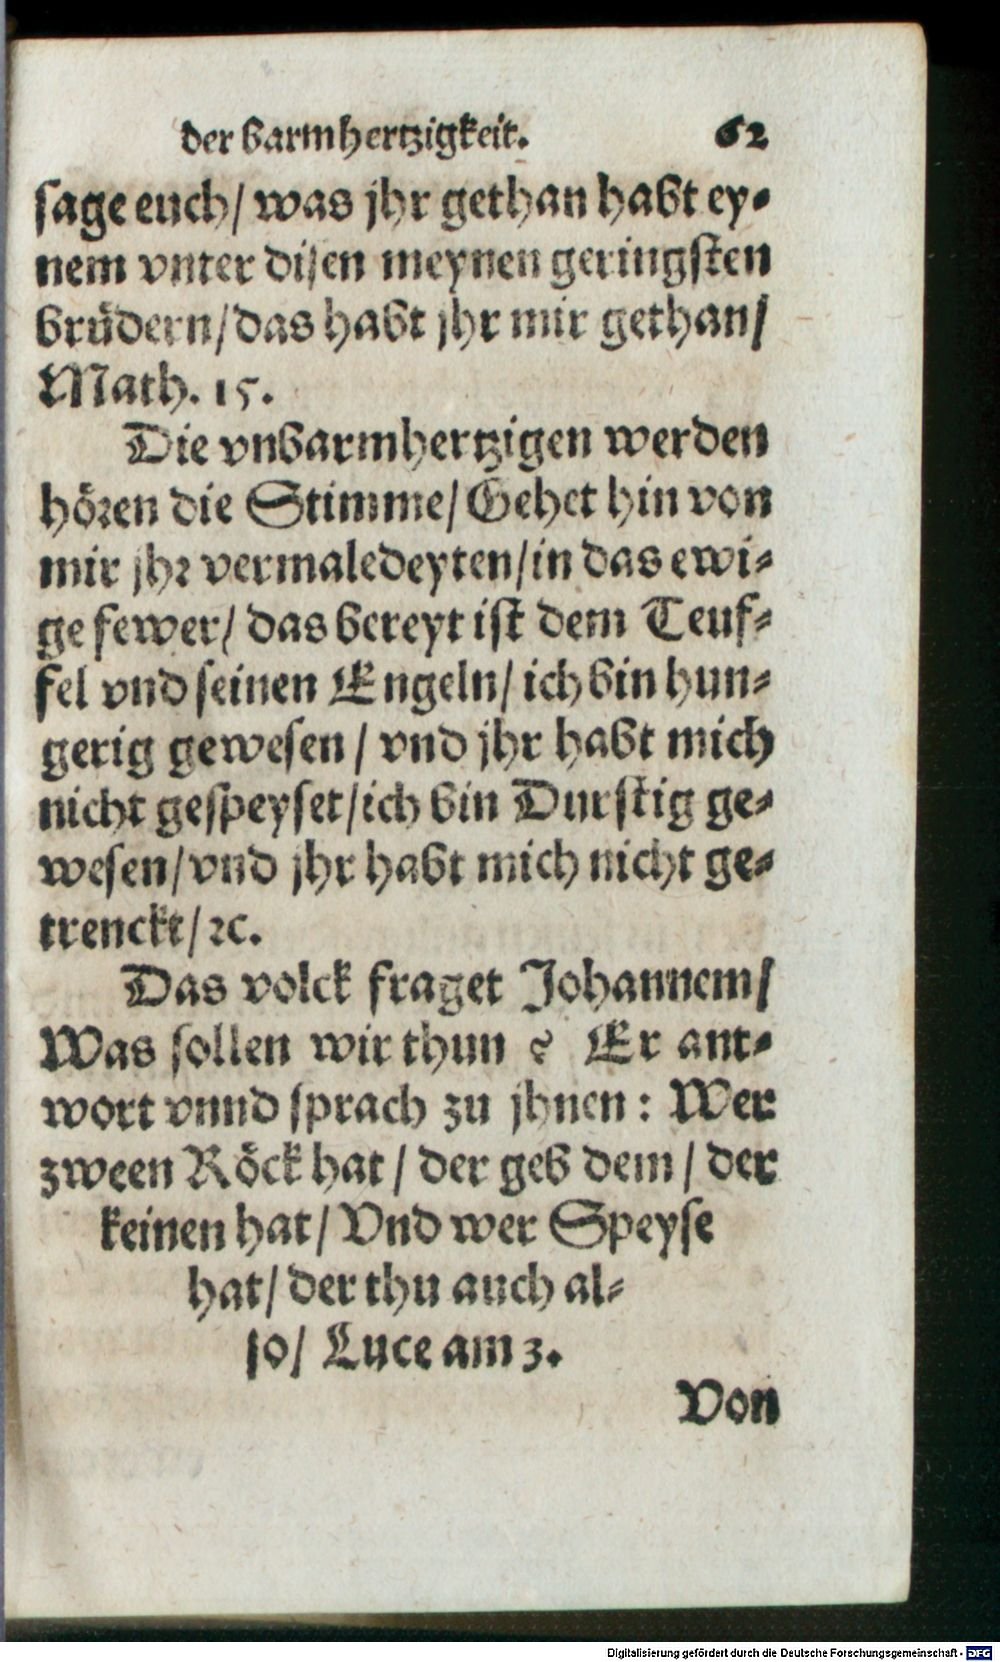 der barmhertzigkeit. 62
sage euch/ was jhr gethan habt ey-
nem vnter disen meynen geringsten
brüdern/ das habt jhr mir gethan/
Math. 15.
Die vnbarmhertzigen werden
hören die Stimme/ Gehet hin von
mir jhr vermaledeyten/ in das ewi-
ge fewer/ das bereyt ist dem Teuf-
fel vnd seinen Engeln/ ich bin hun-
gerig gewesen / vnd jhr habt mich
nicht gespeyset/ ich bin Durstig ge-
wesen/ vnd jhr habt mich nicht ge-
trenckt/ ꝛc.
Das volck fraget Johannem/
Was sollen wir thun ? Er ant-
wort vnnd sprach zu jhnen : Wer
zween Röck hat / der geb dem / der
keinen hat/ Vnd wer Speyse
hat/ der thu auch al-
so/ Luce am 3.
Von
Digitalisierung gefördert durch die Deutsche Forschungsgemeinschaft - DFG